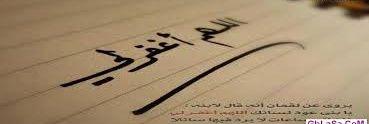 اللهم أغفر لي
يروى عن لقمان أنه قال لابنه :
يا بني عود لسانك اللهم اغفر لي
ساعات لا يرد فيها سائلا
GhLaSa.CoM